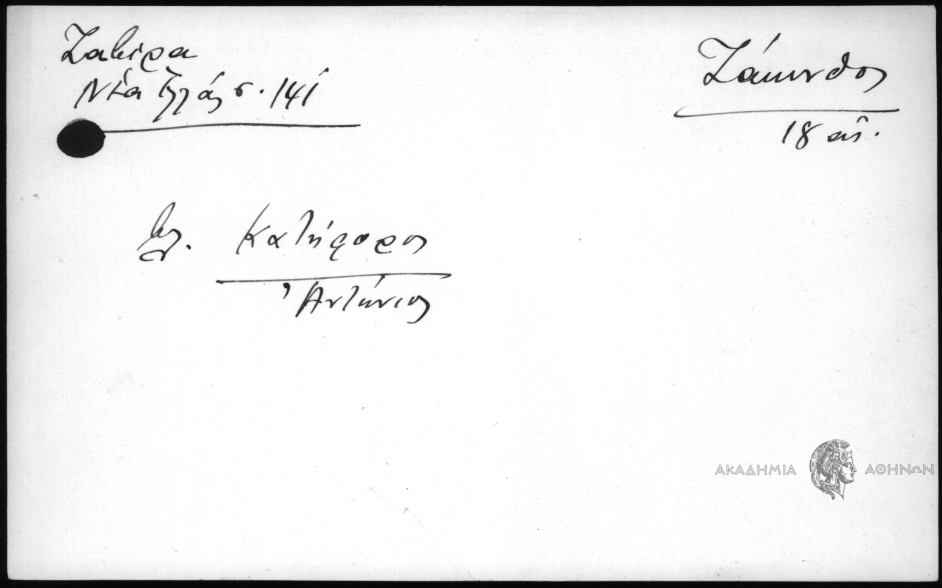 Ζαβίρα
Νέα Ἑλλάς σ. 141
Ζάκυνθος
18 αἰ.
βλ. Κατήφορος
Ἀντώνιος
ΑΚΑΔΗΜΙΑ ΑΘΗΝΩΝ